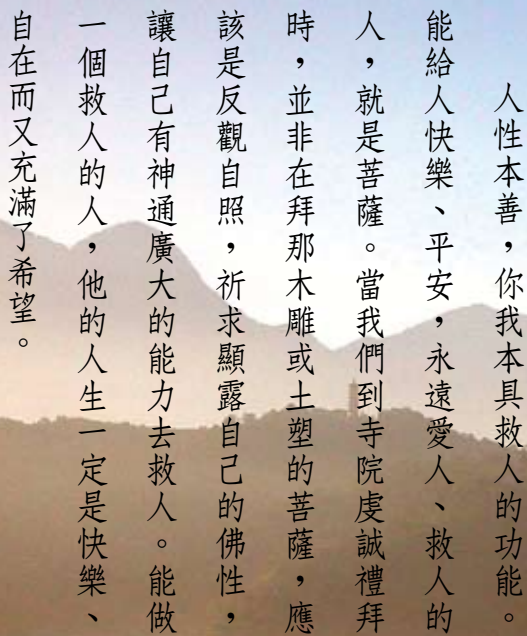 人性本善，你我本具救人的功能。
能給人快樂、平安，永遠愛人、救人的
人，就是菩薩。當我們到寺院虔誠禮拜
時，並非在拜那木雕或土塑的菩薩，應
該是反觀自照，祈求顯露自己的佛性，
讓自己有神通廣大的能力去救人。能做
一個救人的人，他的人生一定是快樂、
自在而又充滿了希望。